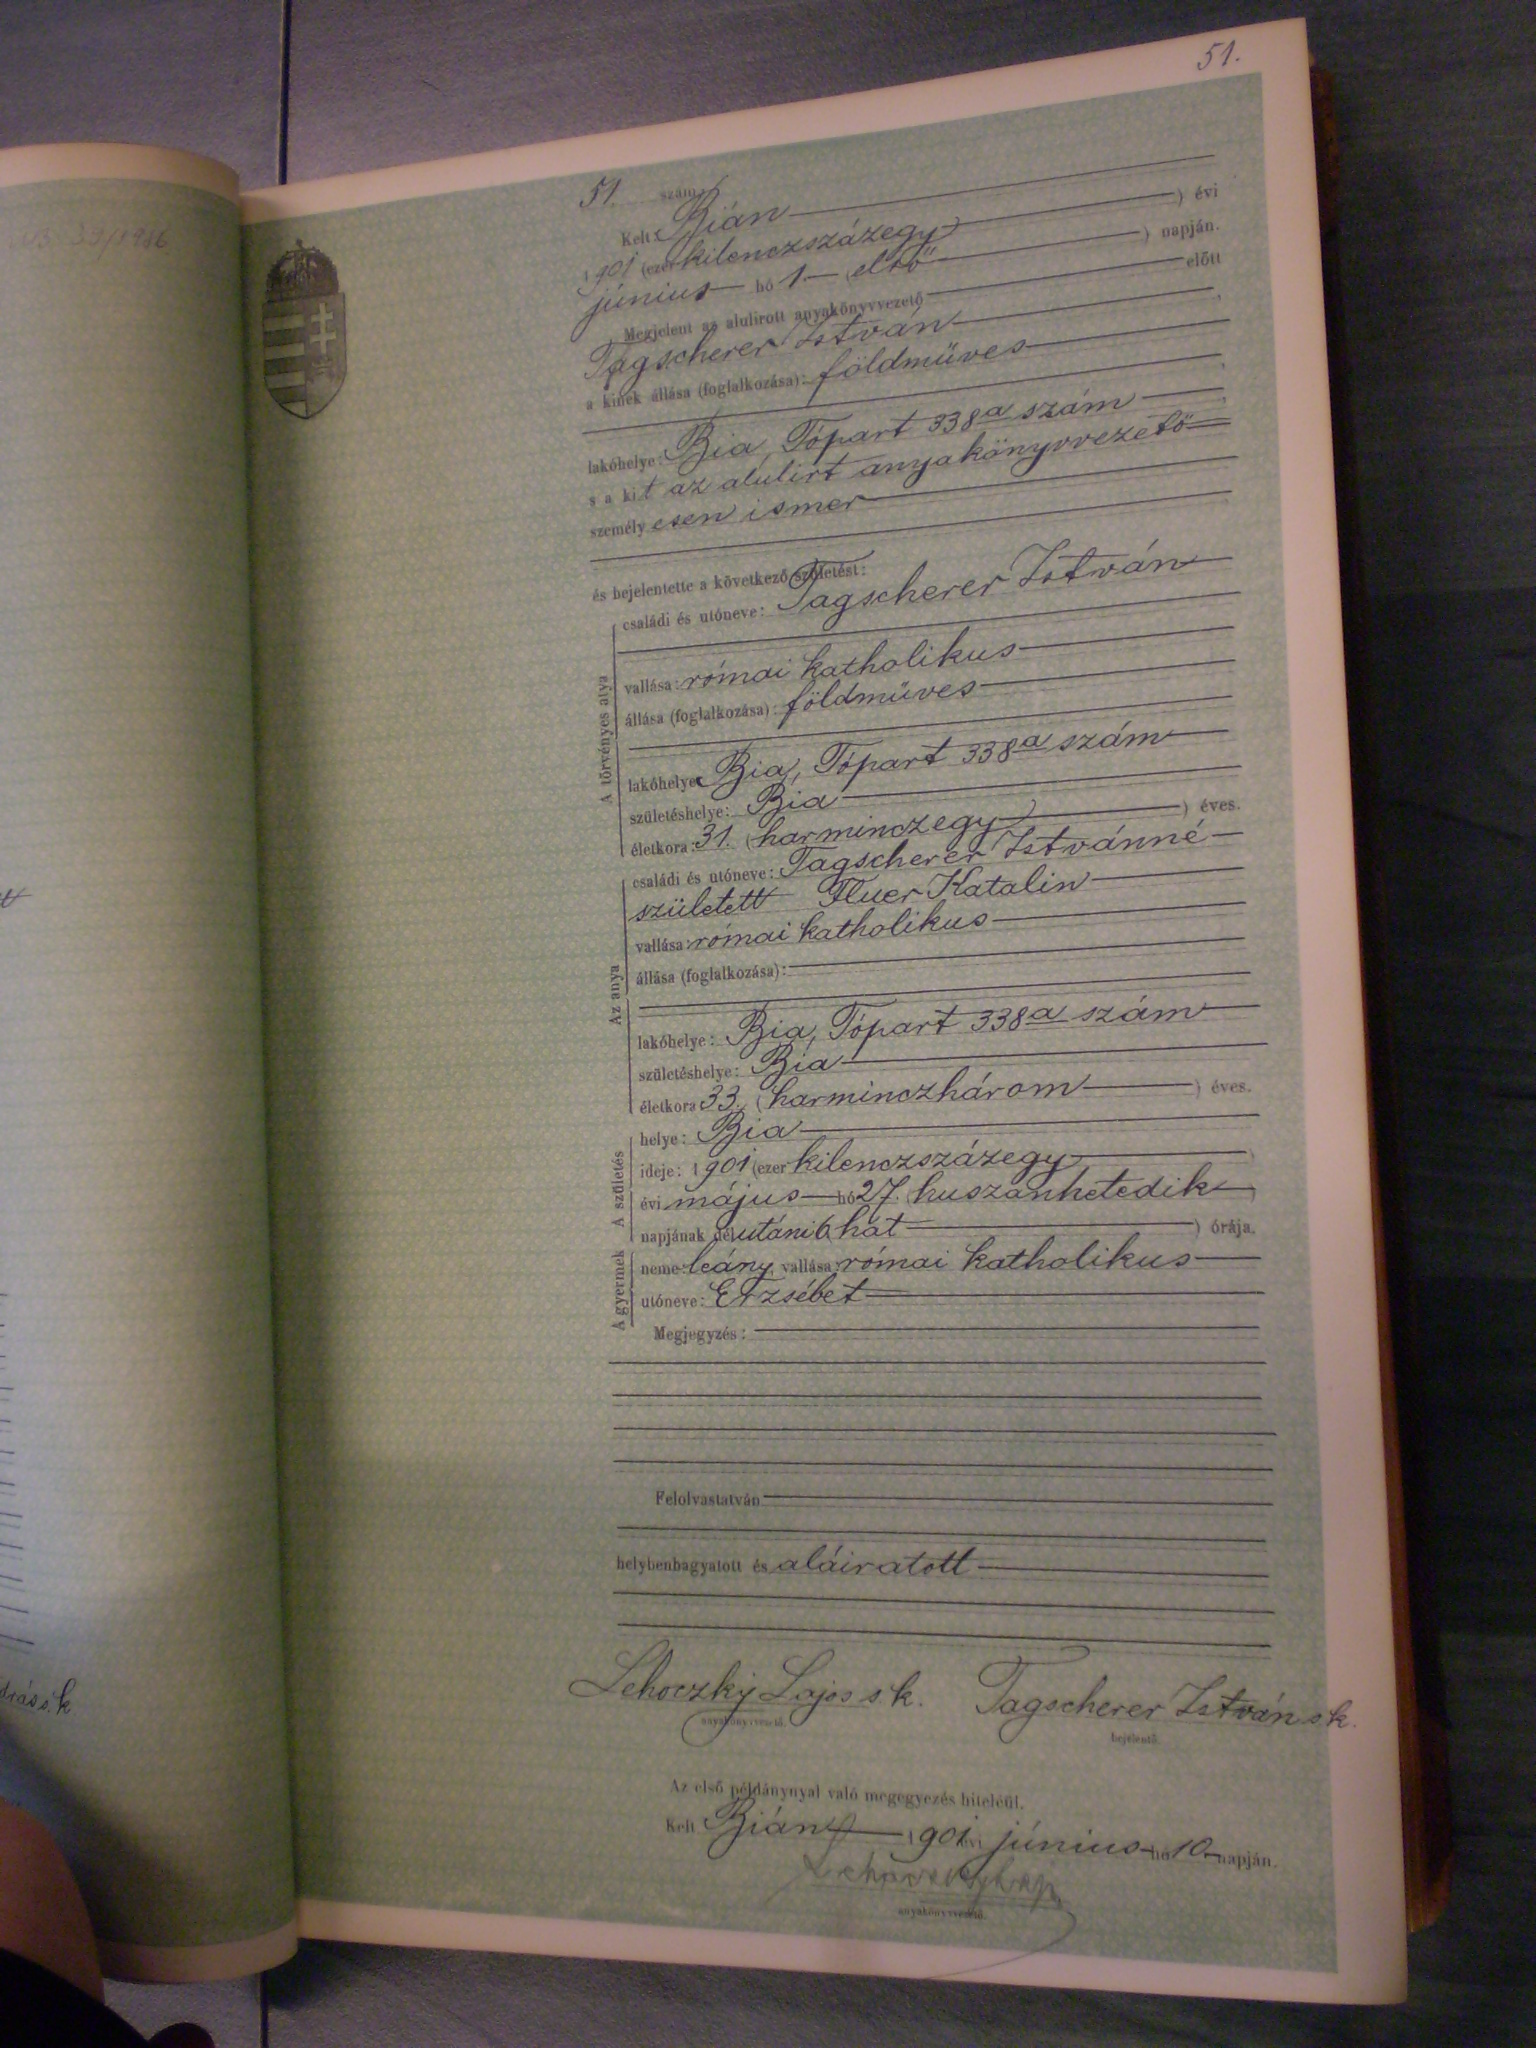 51.
51. szám.
Kelt Bián
1901 (ezer kilenczszázegy) évi
június hó 1. (első) napján.
Megjelent az alulirott anyakönyvvezető előtt
Tagscherer István
a kinek állása (foglalkozása): földmüves
lakóhelye: Bia, Tópart 338a szám
s a kit az alulírt anyakönyvvezető
személyesen ismer
és bejelentette a következő születést:
A törvényes atya
családi és utóneve: Tagscherer István
vallása: római katholikus
állása (foglalkozása): földmüves
lakóhelye: Bia, Tópart 338a szám
születéshelye: Bia
életkora: 31. (harminczegy) éves.
Az anya
családi és utóneve: Tagscherer Istvánné
született Fluer Katalin
vallása: római katholikus
állása (foglalkozása):
lakóhelye: Bia, Tópart 338a szám
születéshelye: Bia
életkora 33. (harminczhárom) éves.
A születés
helye: Bia
ideje: 1901 (ezer kilenczszázegy)
évi május hó 27. (huszonhetedik)
napjának délutáni 6 (hat) órája.
A gyermek
neme: leány, vallása: római katholikus
utóneve: Erzsébet
Megjegyzés:
Felolvastatván
helybenhagyatott és aláiratott
Lehoczky Lajos s.k. Tagscherer István s.k.
anyakönyvvezető. bejelentő.
Az első példánynyal való megegyezés hiteléül.
Kelt Bián 1901 évi június hó 10. napján.
Lehoczky Lajos
anyakönyvvezető.